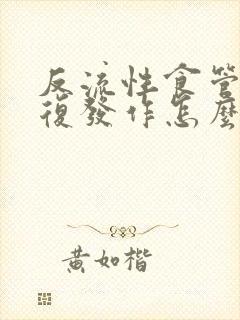 反流性食管
復發作怎麼
黄如楷